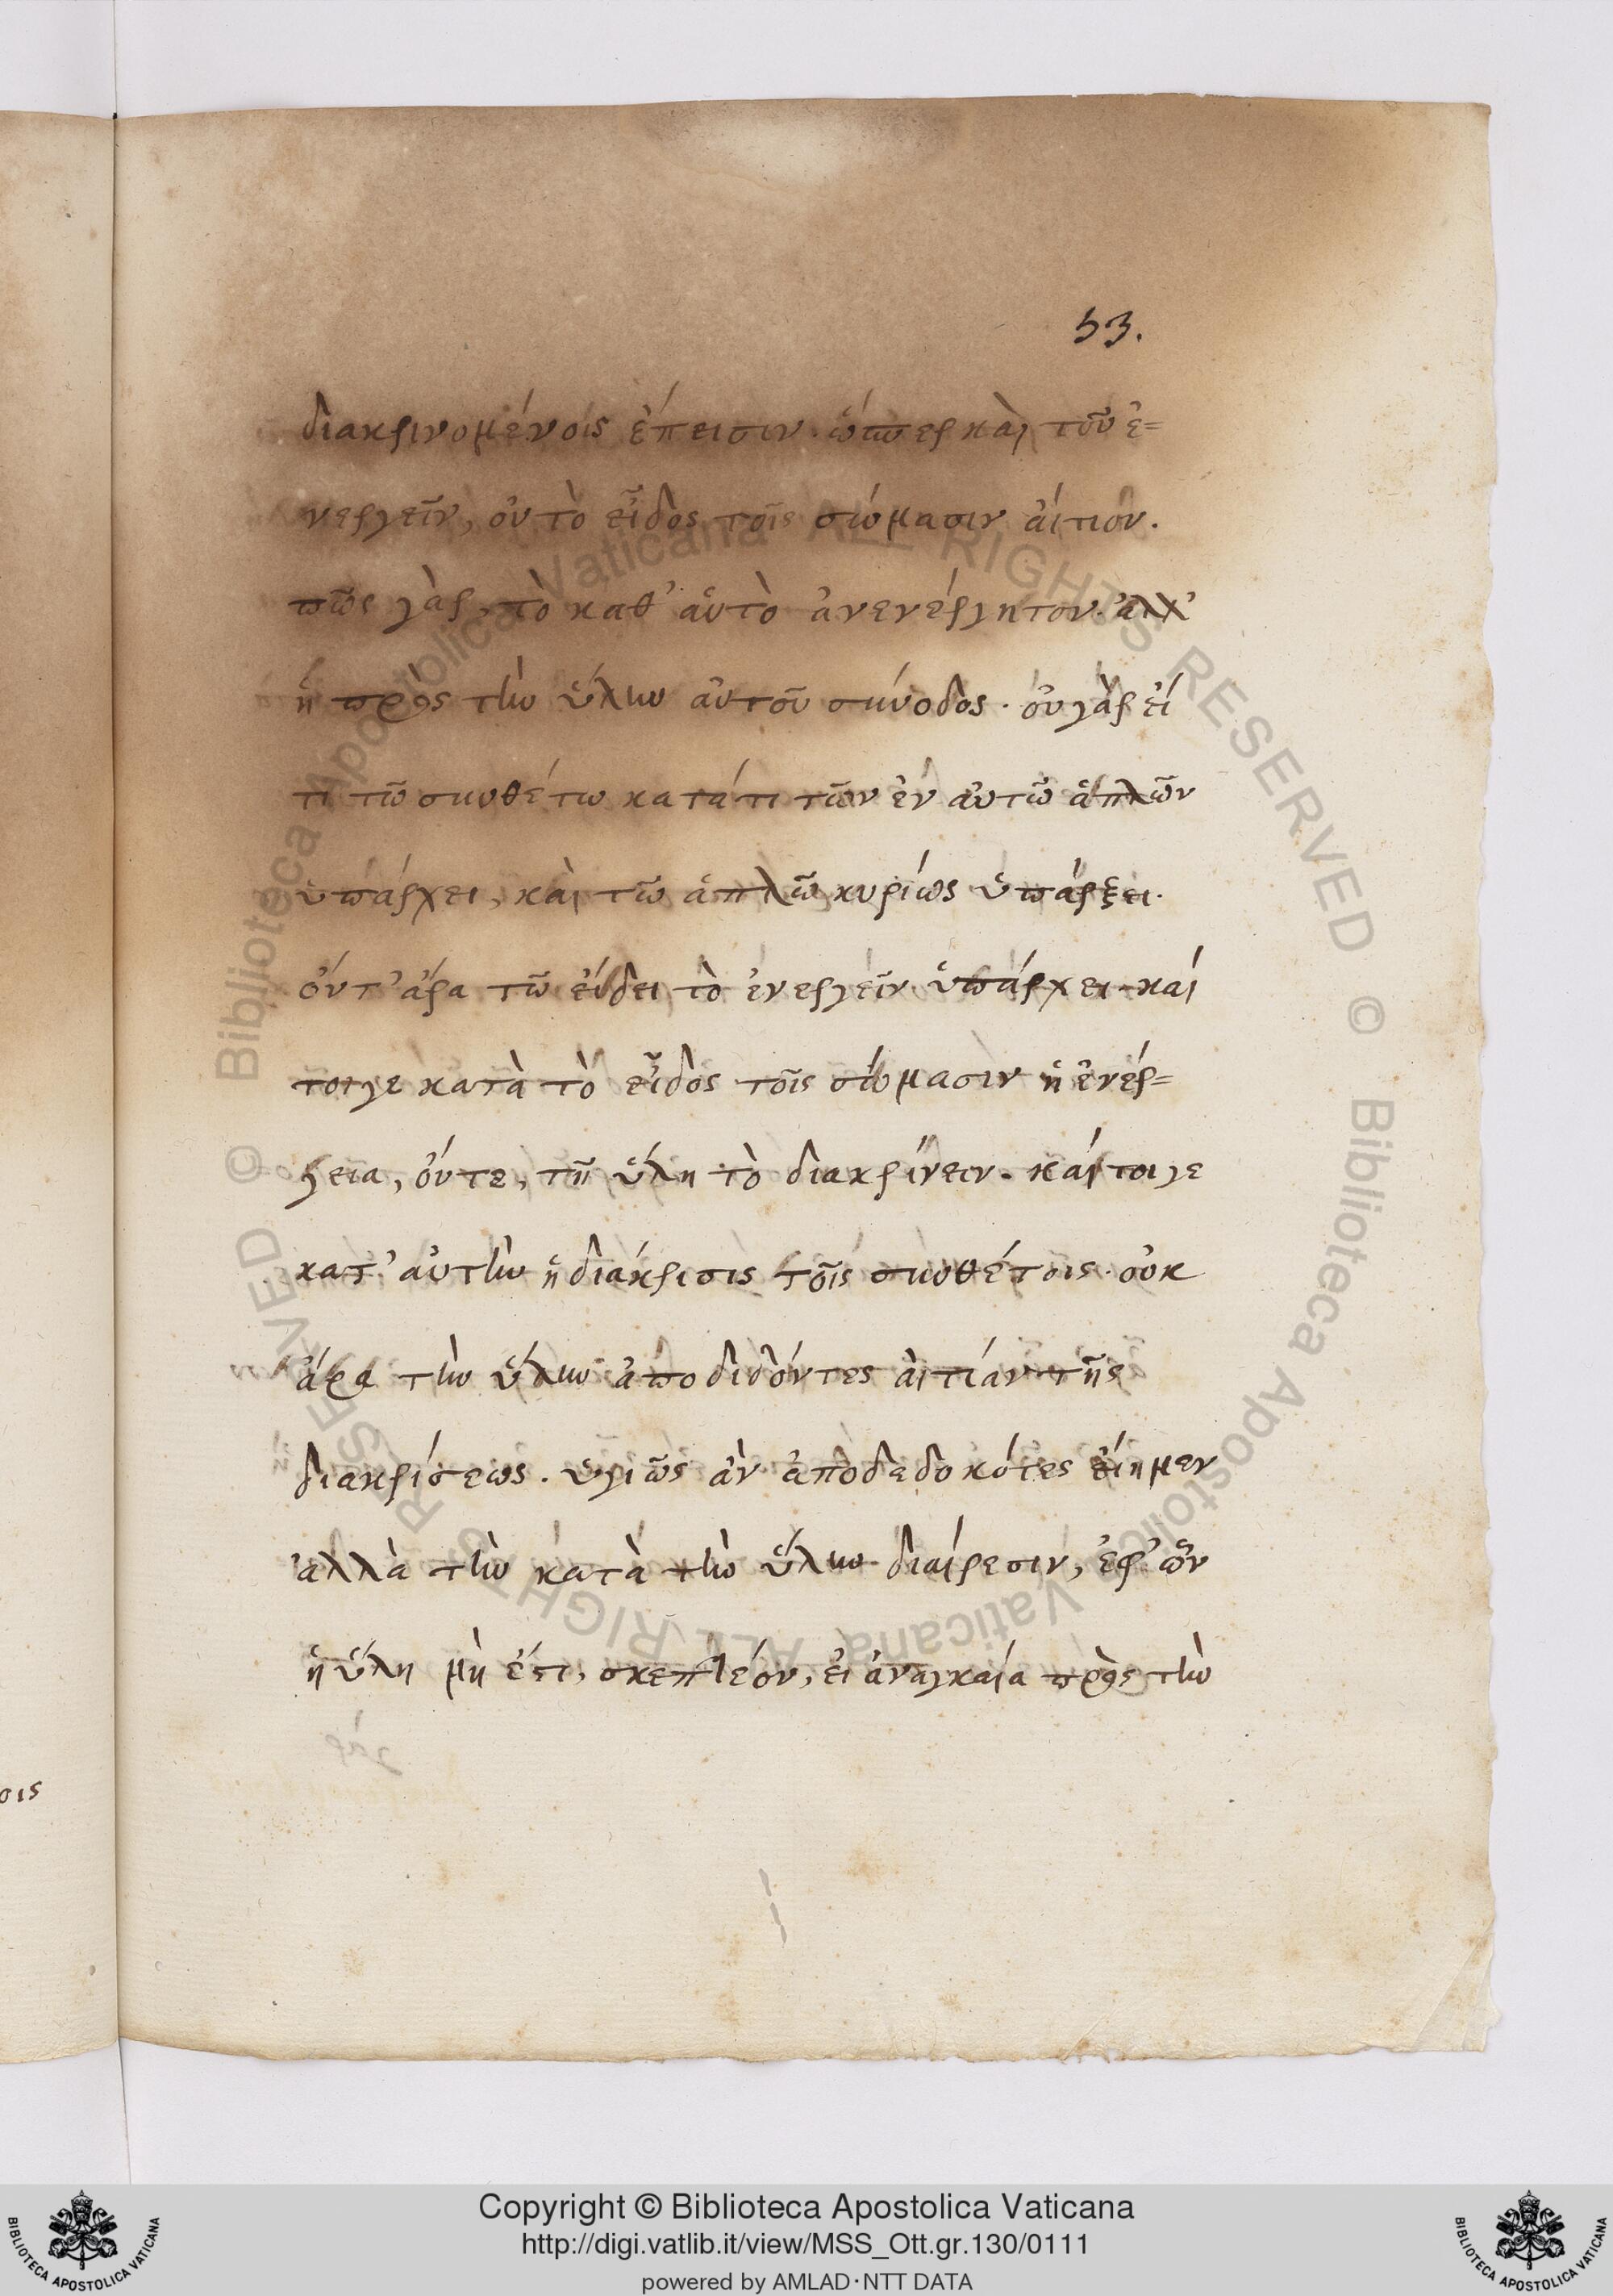 53.
διακρινομένοις ἔπεισιν. ὥσπερ καὶ τοῦ ἐ=
νεργεῖν, οὐ τὸ εἶδος τοῖς σώμασιν αἴτιον.
πῶς γὰρ, τὸ καθ' αὑτὸ ἀνενέργητον. ἀλλ'
ἡ πρὸς τὴν ὕλην αὐτοῦ σύνοδος. οὐ γὰρ εἴ
τι τῷ συνθέτω κατά τι τῶν ἐν αὐτῶ ἁπλῶν
ὑπάρχει, καὶ τῶ ἁπλῶ κυρίως ὑπάρξει.
οὔτ' ἄρα τῶ εἴδει τὸ ἐνεργεῖν ὑπάρχει. καί
τοιγε κατὰ τὸ εἶδος τοῖς σώμασιν ἡ ἐνέρ=
γεια, οὔτε, τῆ ὕλη τὸ διακρίνειν. καίτοιγε
κατ' αὐτὴν ἡ διάκρισις τοῖς συνθέτοις. οὐκ
ἄρα τὴν ὕλην ἀποδιδόντες αἰτίαν τῆς
διακρίσεως. ὑγιῶς ἂν ἀποδεδοκότες εἴημεν
ἀλλὰ τὴν κατὰ τὴν ὕλην διαίρεσιν, ἐφ' ὧν
ἡ ὕλη μὴ ἔστι, σκεπτέον, εἰ ἀναγκαία πρὸς τὴν
οις
Copyright © Biblioteca Apostolica Vaticana
http://digi.vatlib.it/view/MSS_Ott.gr.130/0111
powered by AMLAD·NTT DATA
BIBLIOTECA APOSTOLICA VATICANA
BIBLIOTECA APOSTOLICA VATICANA
© Biblioteca Apostolica Vaticana ALL RIGHTS RESERVED © Biblioteca Apostolica Vaticana ALL RIGHTS RESERVED